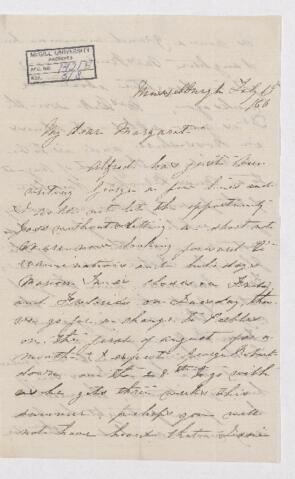 McGILL UNIVERSITY
ARCHIVES
ACC. NO.
REF.
Musselburgh July 15
/66
My dear Margaret
Alfred has just been
writing George a few lines and
I would not let the opportunity
pass without writing a short note
We are now looking forward to
examinations and holidays
Marion's closes on Friday
and Frederic's on Tuesday, then
we go for a change to Peebles
on the first of August for a
month & I expect George Robert
down on the 28th to go with
us he gets three weeks this
summer perhaps you will
not have heard that